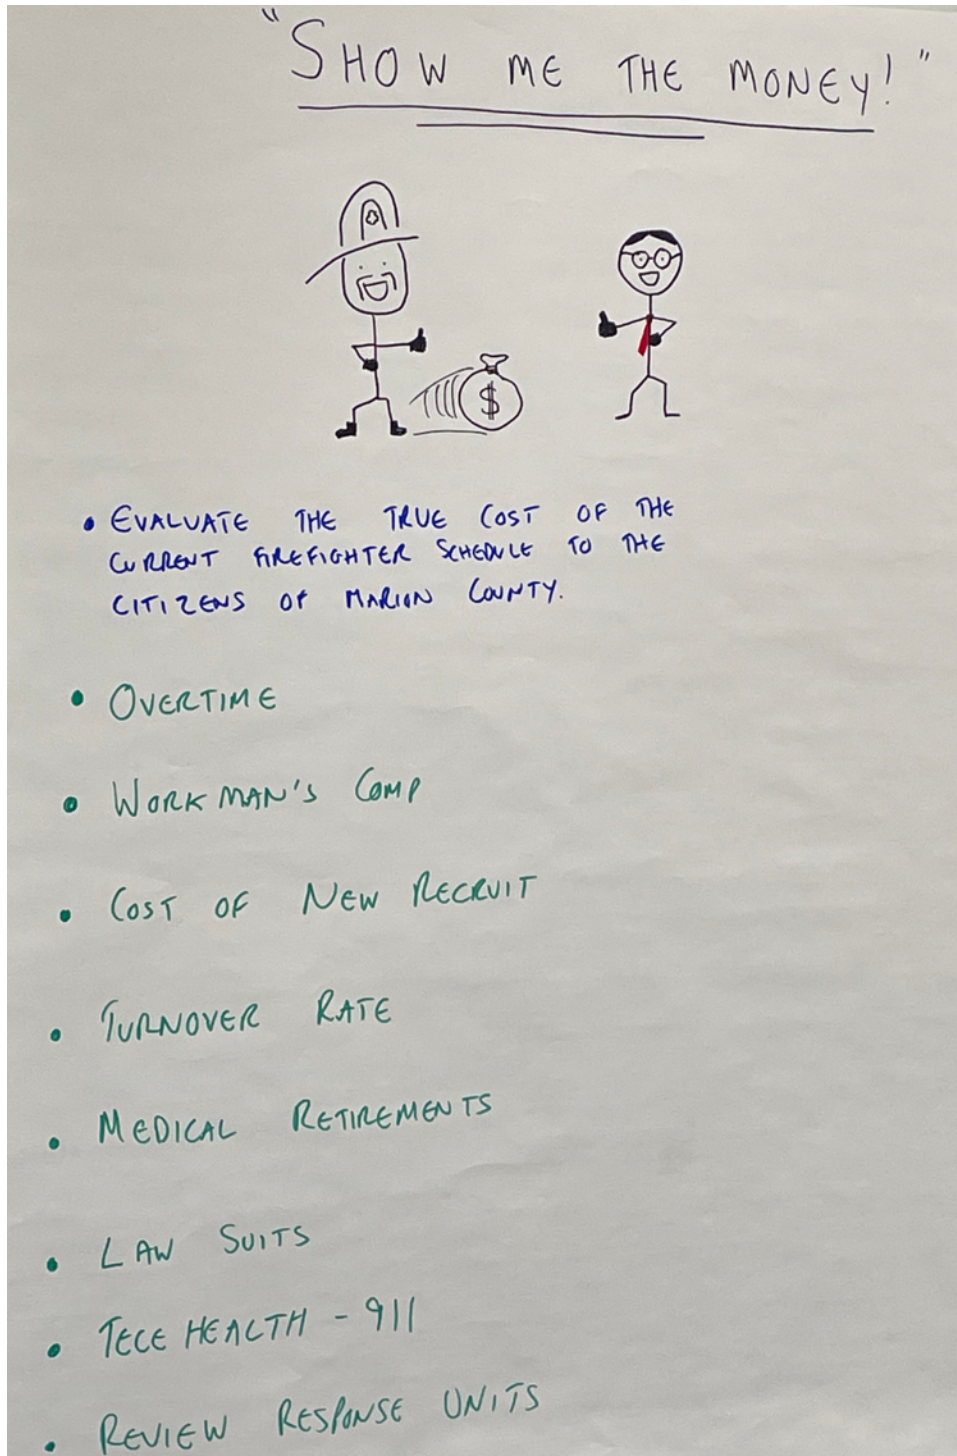 "SHOW ME THE MONEY!"
$
• EVALUATE THE TRUE COST OF THE
CURRENT FIREFIGHTER SCHEDULE TO THE
CITIZENS OF MARION COUNTY.
• OVERTIME
• WORKMAN'S COMP
• COST OF NEW RECRUIT
• TURNOVER RATE
• MEDICAL RETIREMENTS
• LAW SUITS
• TELE HEALTH - 911
• REVIEW RESPONSE UNITS